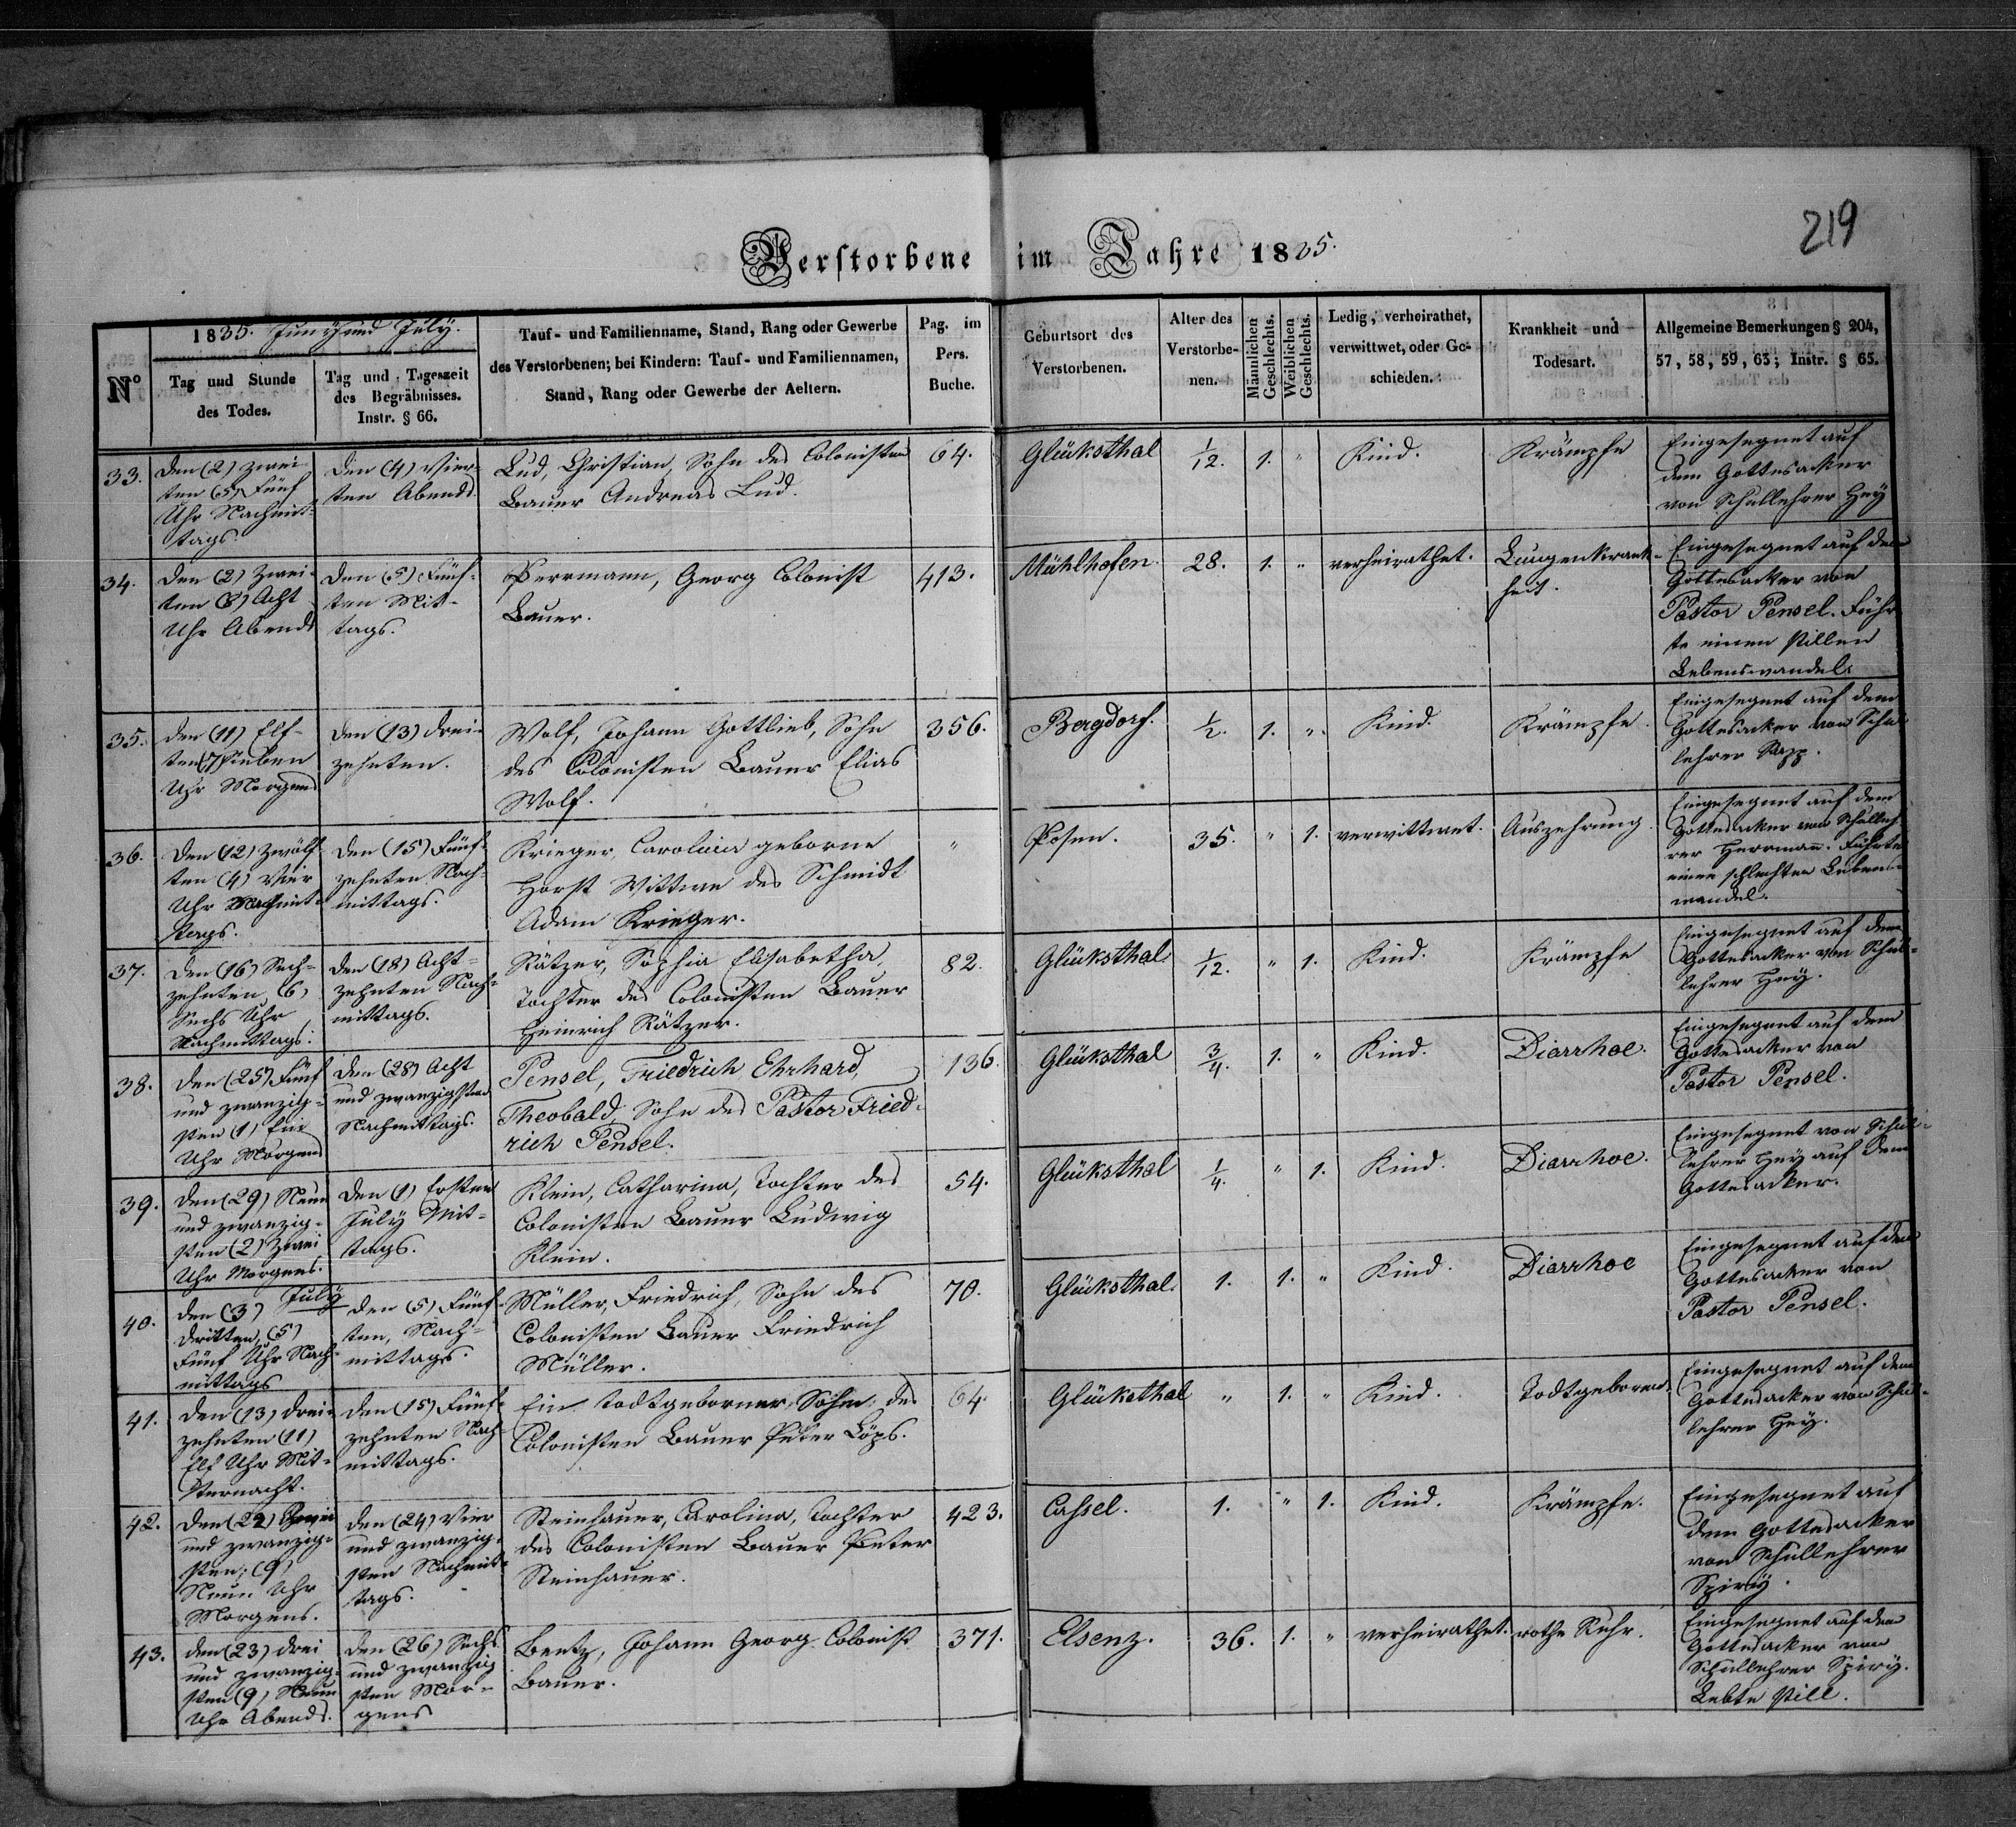 219
Verstorbene im Jahre 1835.
Nº
1835. Juny und July.
Tag und Stunde
des Todes.
Tag und Tageszeit
des Begräbnisses.
Instr. § 66.
Tauf- und Familienname, Stand, Rang oder Gewerbe
des Verstorbenen; bei Kindern: Tauf- und Familiennamen,
Stand, Rang oder Gewerbe der Aeltern.
Pag. im
Pers.
Buche.
Geburtsort des
Verstorbenen.
Alter des
Verstorbe-
nen.
Männlichen
Geschlechts.
Weiblichen
Geschlechts.
Ledig, verheirathet,
verwittwet, oder Ge-
schieden.
Krankheit und
Todesart.
Allgemeine Bemerkungen § 204,
57, 58, 59, 63; Instr. § 65.
33.
Den (2) zwei
ten (5) Fünf
Uhr Nachmit-
tags.
Den (4) Vier-
ten Abends.
Lud, Christian, Sohn des Colonisten
Bauer Andreas Lud.
64.
Glüksthal
1/12.
1.
"
Kind.
Krämpfe
Eingesegnet auf
dem Gottesacker
von Schullehrer Hey
34.
Den (2) Zwei-
ten (8) Acht
Uhr Abends
Den (5) Fünf-
ten Mit-
tags.
Perrmann, Georg Colonist
Bauer.
413.
Mühlhofen.
28.
1.
"
verheirathet.
Lungenkrank-
heit.
Eingesegnet auf dem
Gottesacker von
Pastor Pensel. Führ
te einen stillen
Lebenswandel.
35.
Den (11) Elf-
ten (7) Sieben
Uhr Morgens
Den (13) Drei-
zehnten.
Wolf, Johann Gottlieb, Sohn
des Colonisten Bauer Elias
Wolf.
356.
Bergdorf.
1/2.
1.
"
Kind
Krämpfe.
Eingesegnet auf dem
Gottesacker von Schu
lehrer Rapp.
36.
Den (12) Zwölf
ten (4) Vier
Uhr Nachmit-
tags.
Den (15) Fünf-
zehnten Nach-
mittags.
Krieger, Carolina geborne
Horst Wittwe des Schmidt
Adam Krieger.
"
Posen.
35.
"
1.
verwittwet.
Auszehrung.
Eingesegnet auf dem
Gottesacker von Schulleh
rer Herrmann. Führte
einen schlechten Lebens-
wandel.
37.
Den (16) Sech-
zehnten (6)
Sechs Uhr
Nachmittags.
Den (18) Acht-
zehnten Nach-
mittags.
Rätzer, Sophia Elisabetha,
Tochter des Colonisten Bauer
Heinrich Rätzer.
82.
Glüksthal.
1/12.
"
1.
Kind.
Krämpfe
Eingesegnet auf dem
Gottesacker von Schul-
lehrer Hey.
38.
Den (25) Fünf
und zwanzig-
sten (1) Ein
Uhr Morgens
Den (28) Acht
und zwanzigsten
Nachmittags.
Pensel, Friedrich Ehrhard,
Theobald, Sohn des Pastor Fried-
rich Pensel.
136.
Glüksthal
3/4.
1.
"
Kind.
Diarrhoe.
Eingesegnet auf dem
Gottesacker von
Pastor Pensel.
39.
Den (29) Neun
und zwanzig-
sten (2) Zwei
Uhr Morgens.
Den (1) Ersten
July Mit-
tags.
Klein, Catharina, Tochter des
Colonisten Bauer Ludwig
Klein.
54.
Glüksthal
1/4.
"
1.
Kind.
Diarrhoe.
Eingesegnet von Schul-
lehrer Hey auf dem
Gottesacker.
40.
July
Den (3)
Dritten, (5)
Fünf Uhr Nach-
mittags
Den (5) Fünf-
ten, Nach-
mittags.
Müller, Friedrich, Sohn des
Colonisten Bauer Friedrich
Müller.
70.
Glüksthal.
1.
1.
"
Kind.
Diarrhoe
Eingesegnet auf dem
Gottesacker von
Pastor Pensel.
41.
Den (13) Drei-
zehnten (11)
Elf Uhr Mit-
ternacht.
Den (15) Fünf-
zehnten Nach-
mittags.
Ein todtgeborner Sohn des
Colonisten Bauer Peter Löps.
64.
Glüksthal
"
1.
"
Kind.
Todtgeboren.
Eingesegnet auf dem
Gottesacker von Schul-
lehrer Hey.
42.
Den (22) Zwei
und zwanzig-
sten; (9)
Neun Uhr
Morgens.
Den (24) Vier
und zwanzig-
sten Nachmit-
tags.
Steinhauer, Carolina, Tochter
des Colonisten Bauer Peter
Steinhauer.
423.
Cassel.
1.
"
1.
Kind.
Krämpfe.
Eingesegnet auf
dem Gottesacker
von Schullehrer
Spiry.
43.
Den (23) Drei
und zwanzig-
sten (9) Neun
Uhr Abends.
Den (26) Sechs
und zwanzig
sten Mor-
gens
Bentz, Johann Georg Colonist
Bauer.
371.
Elsenz.
36.
1.
"
verheirathet.
rothe Ruhr.
Eingesegnet auf dem
Gottesacker von
Schullehrer Spiry.
Lebte still.